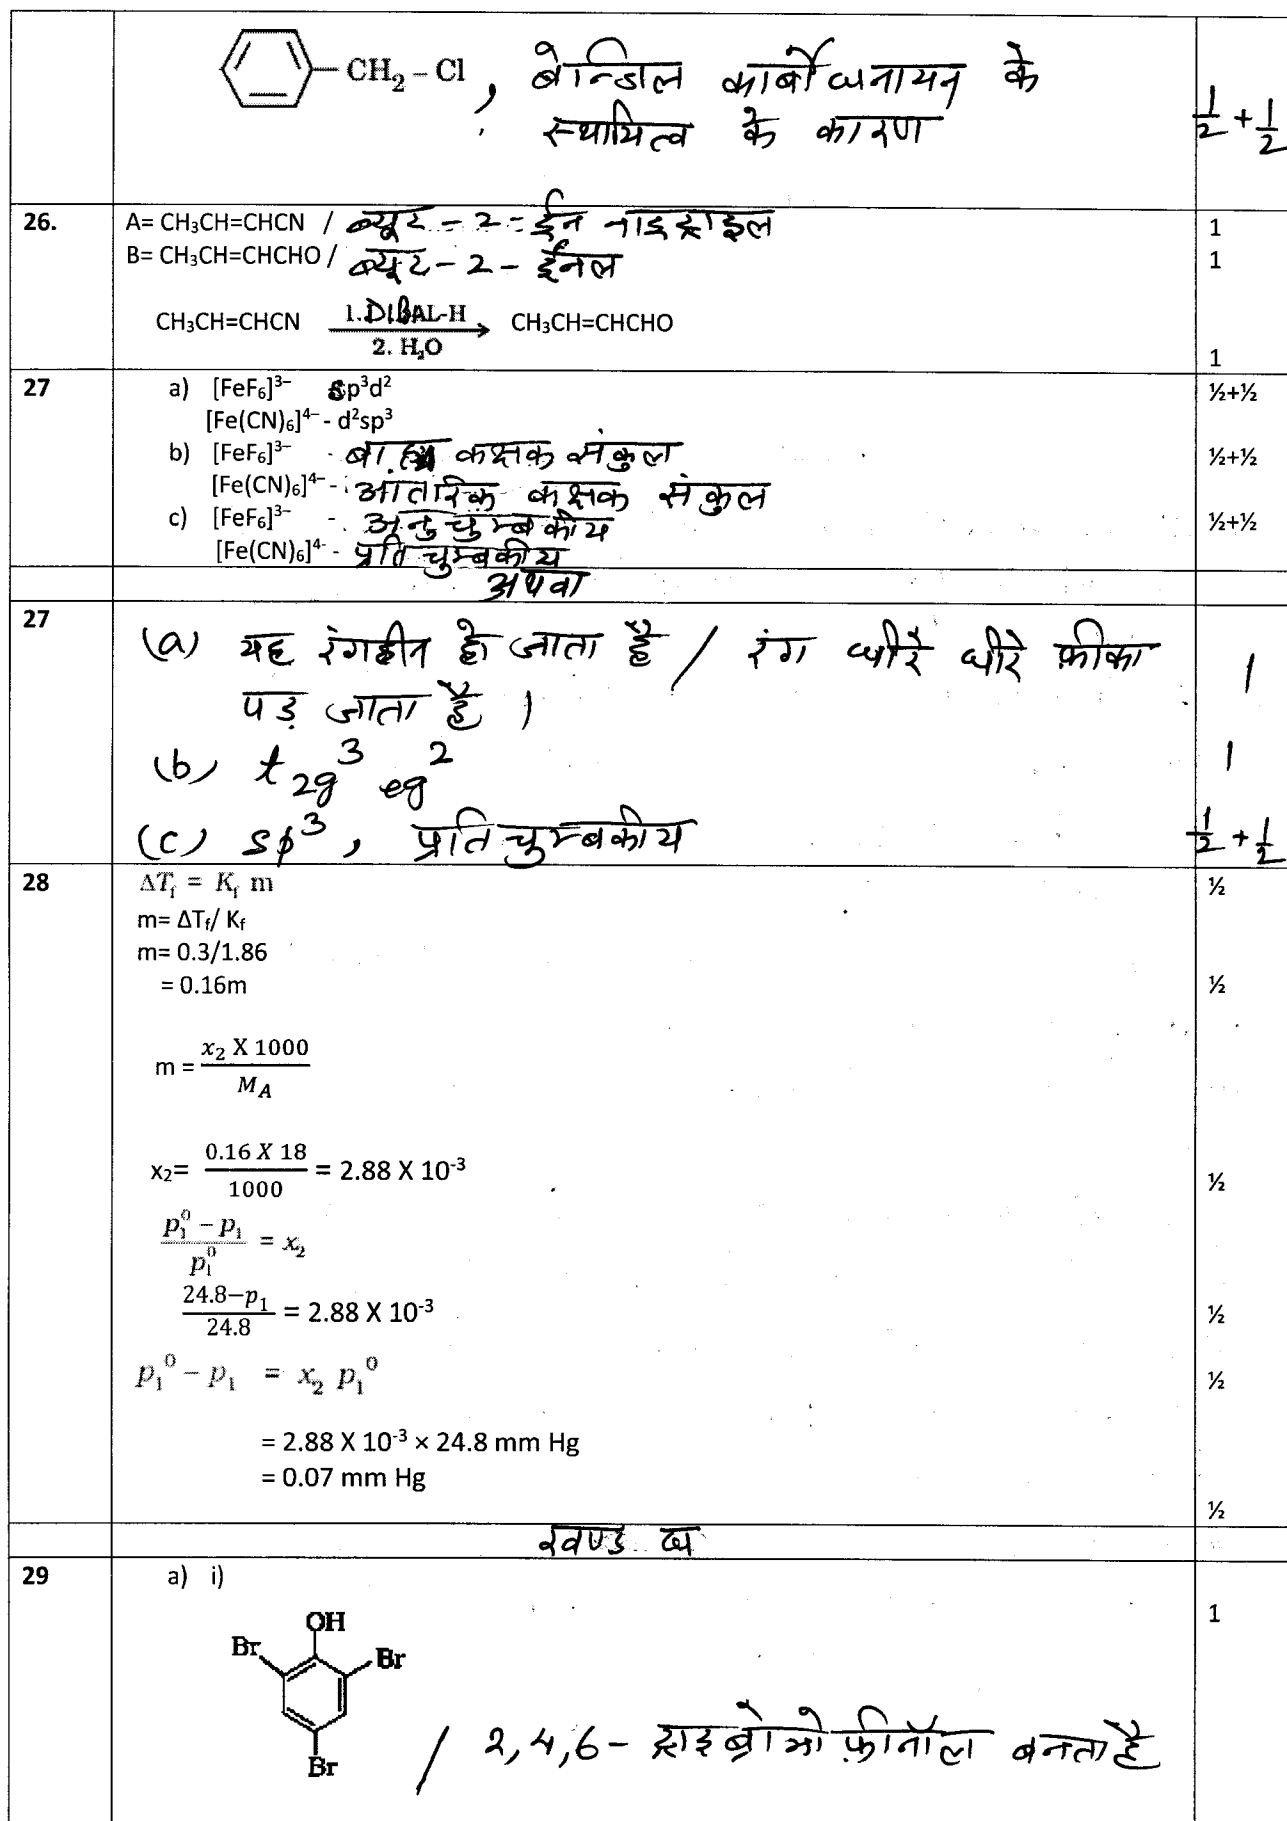 CH₂ – Cl , बेन्जिल कार्बोधनायन के
स्थायित्व के कारण
½ + ½
26. A= CH₃CH=CHCN / ब्यूट – 2 – ईन नाइट्राइल 1
B= CH₃CH=CHCHO / ब्यूट – 2 – ईनल 1
CH₃CH=CHCN 1. DIBAL-H 2. H₂O → CH₃CH=CHCHO
1
27 a) [FeF₆]³⁻ sp³d² ½+½
[Fe(CN)₆]⁴⁻ - d²sp³
b) [FeF₆]³⁻ - बाह्य कक्षक संकुल ½+½
[Fe(CN)₆]⁴⁻ - आंतरिक कक्षक संकुल
c) [FeF₆]³⁻ - अनुचुम्बकीय ½+½
[Fe(CN)₆]⁴⁻ - प्रतिचुम्बकीय
अथवा
27 (a) यह रंगहीन हो जाता है / रंग धीरे धीरे फ़ीका 1
पड़ जाता है ।
(b) t₂g³ eg² 1
(c) sp³ , प्रतिचुम्बकीय ½ + ½
28 ΔTf = Kf m ½
m= ΔTf/ Kf
m= 0.3/1.86
= 0.16m ½
m = x₂ X 1000 / M_A
x₂= 0.16 X 18 / 1000 = 2.88 X 10⁻³ ½
p₁⁰ – p₁ / p₁⁰ = x₂
24.8–p₁ / 24.8 = 2.88 X 10⁻³ ½
p₁⁰ – p₁ = x₂ p₁⁰ ½
= 2.88 X 10⁻³ × 24.8 mm Hg
= 0.07 mm Hg
½
खण्ड घ
29 a) i)
1
OH
Br Br
Br / 2,4,6- ट्राइब्रोमो फ़ीनॉल बनता है